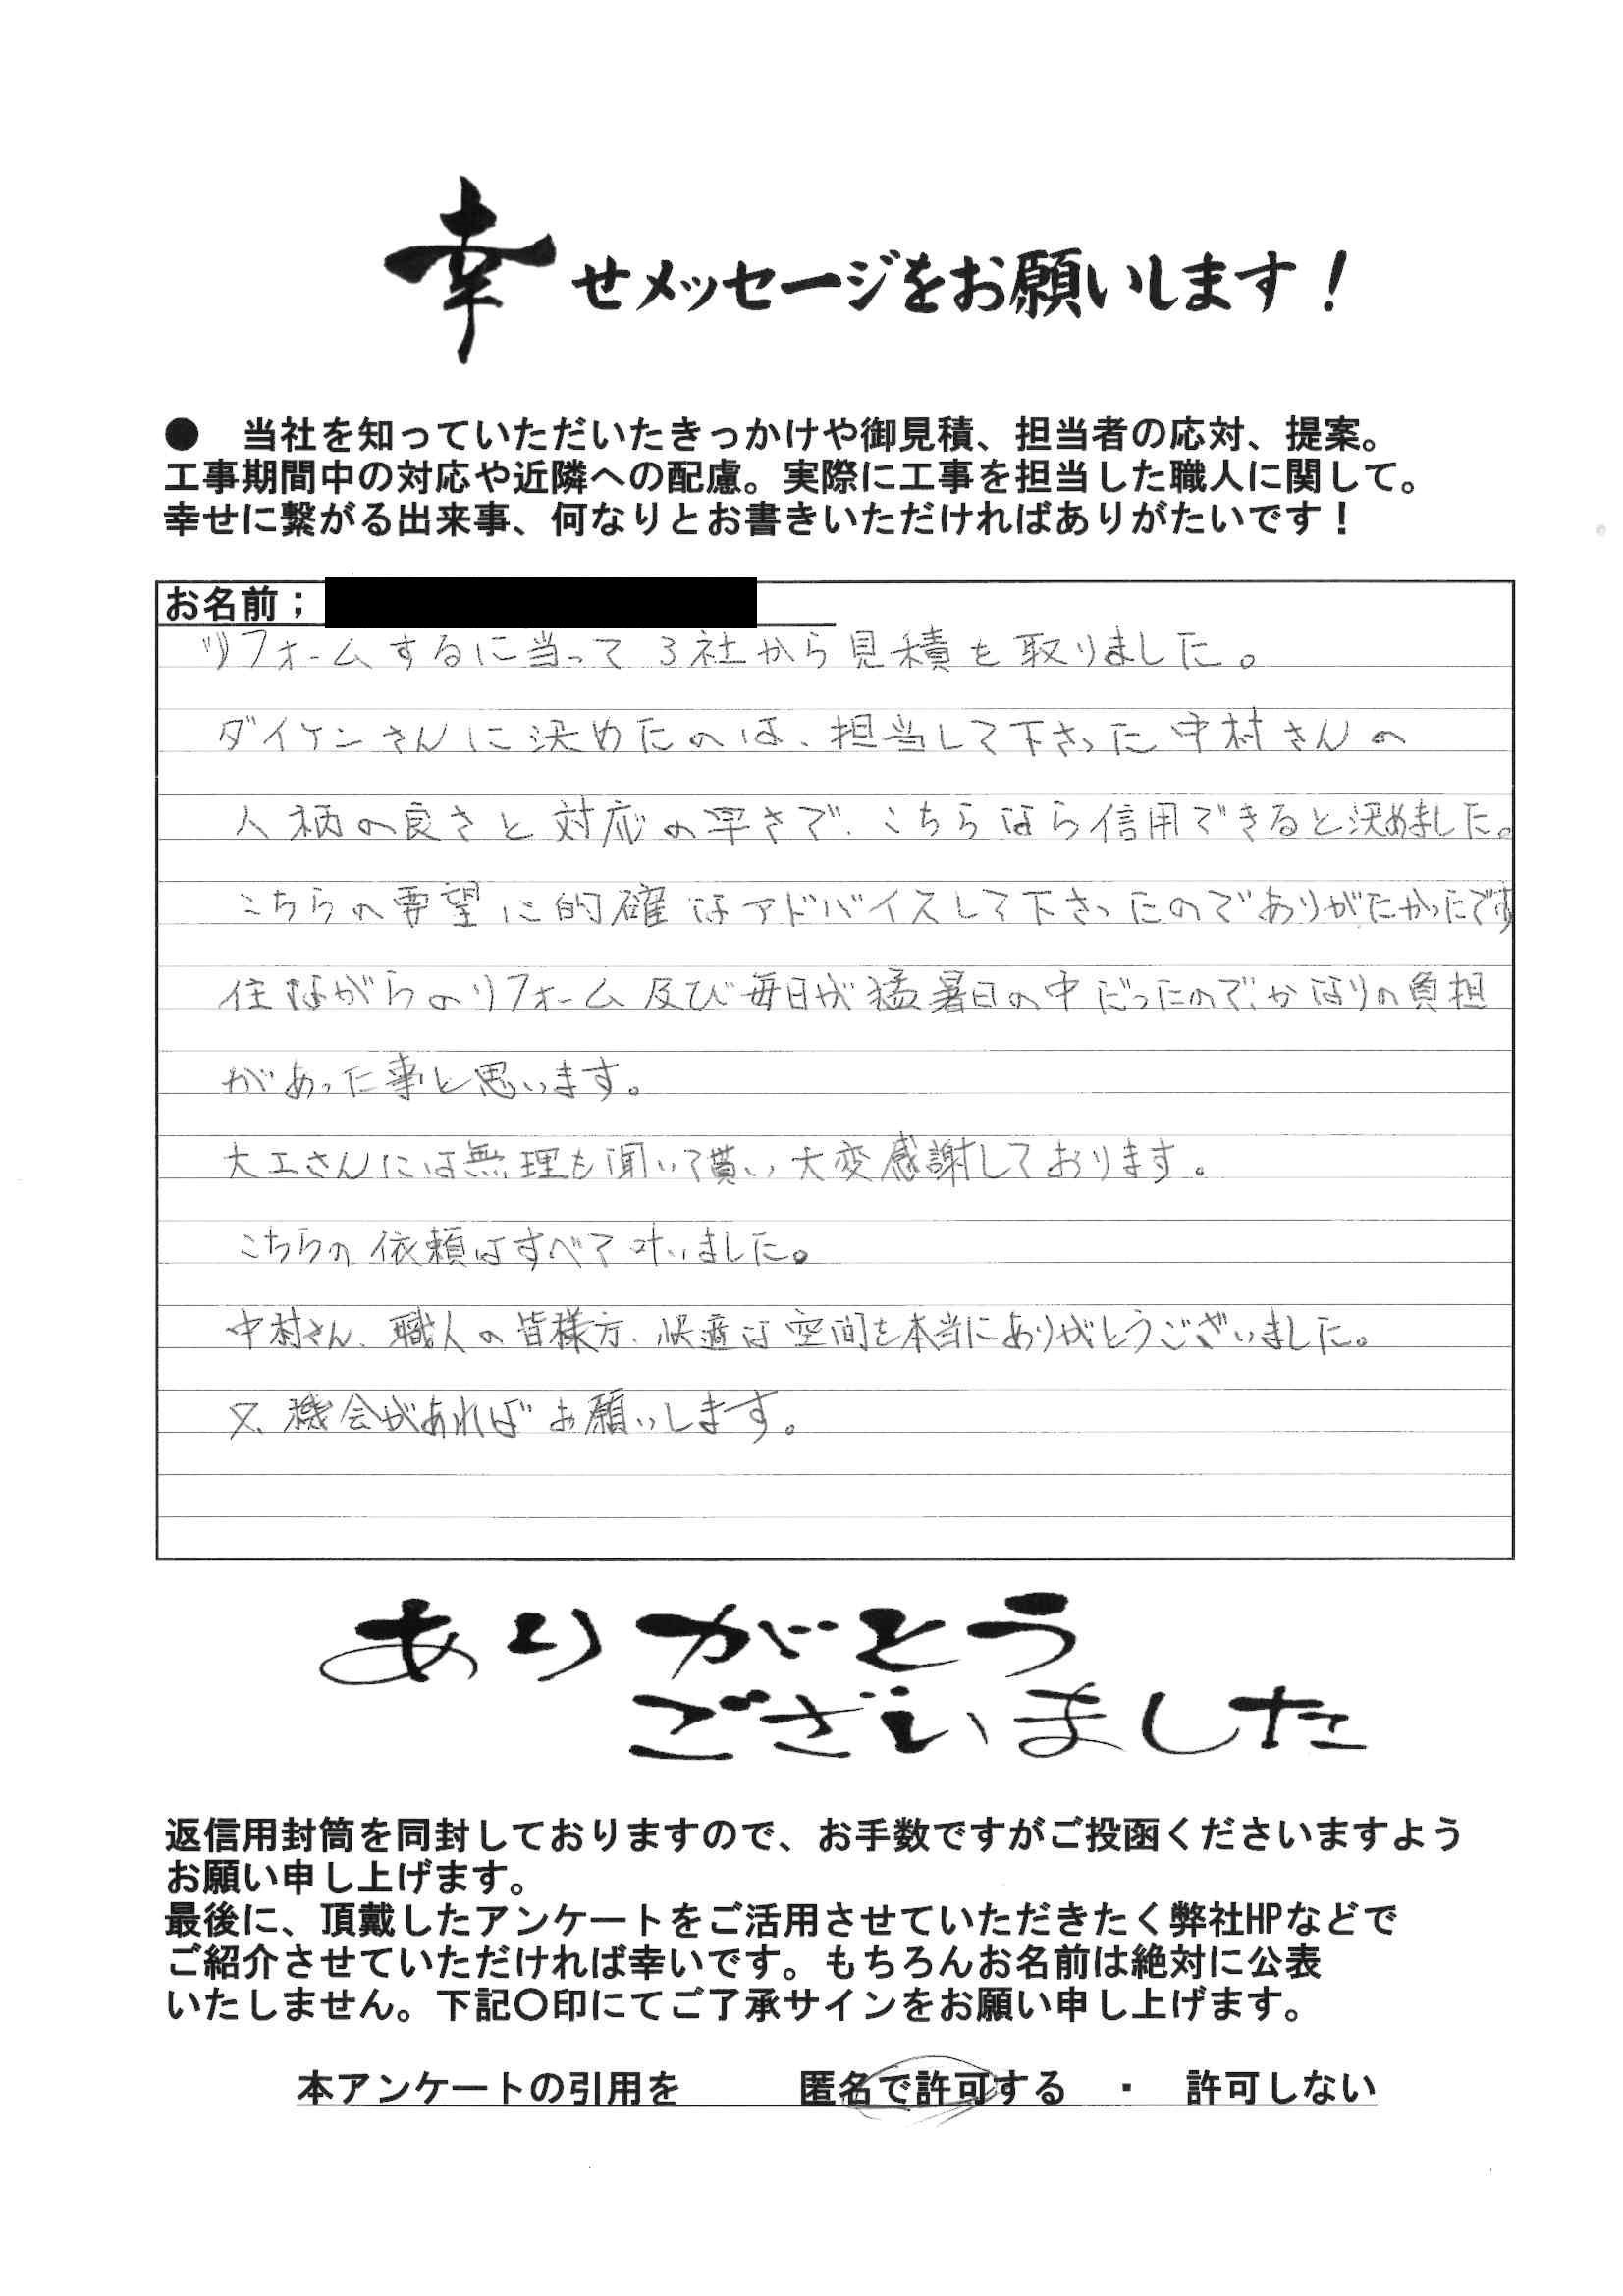 幸せメッセージをお願いします！
●　当社を知っていただいたきっかけや御見積、担当者の応対、提案。
工事期間中の対応や近隣への配慮。実際に工事を担当した職人に関して。
幸せに繋がる出来事、何なりとお書きいただければありがたいです！
お名前；
リフォームするに当って３社から見積を取りました。
ダイケンさんに決めたのは、担当して下さった中村さんの
人柄の良さと対応の早さで、こちらなら信用できると決めました。
こちらの要望に的確なアドバイスして下さったのでありがたかったです
住ながらのリフォーム及び毎日が猛暑日の中だったので、かなりの負担
があった事と思います。
大工さんには無理も聞いて貰い大変感謝しております。
こちらの依頼はすべて叶いました。
中村さん、職人の皆様方、快適な空間を本当にありがとうございました。
又、機会があればお願いします。
ありがとう
ございました
返信用封筒を同封しておりますので、お手数ですがご投函くださいますよう
お願い申し上げます。
最後に、頂戴したアンケートをご活用させていただきたく弊社HPなどで
ご紹介させていただければ幸いです。もちろんお名前は絶対に公表
いたしません。下記〇印にてご了承サインをお願い申し上げます。
本アンケートの引用を　　　匿名で許可する　・　許可しない